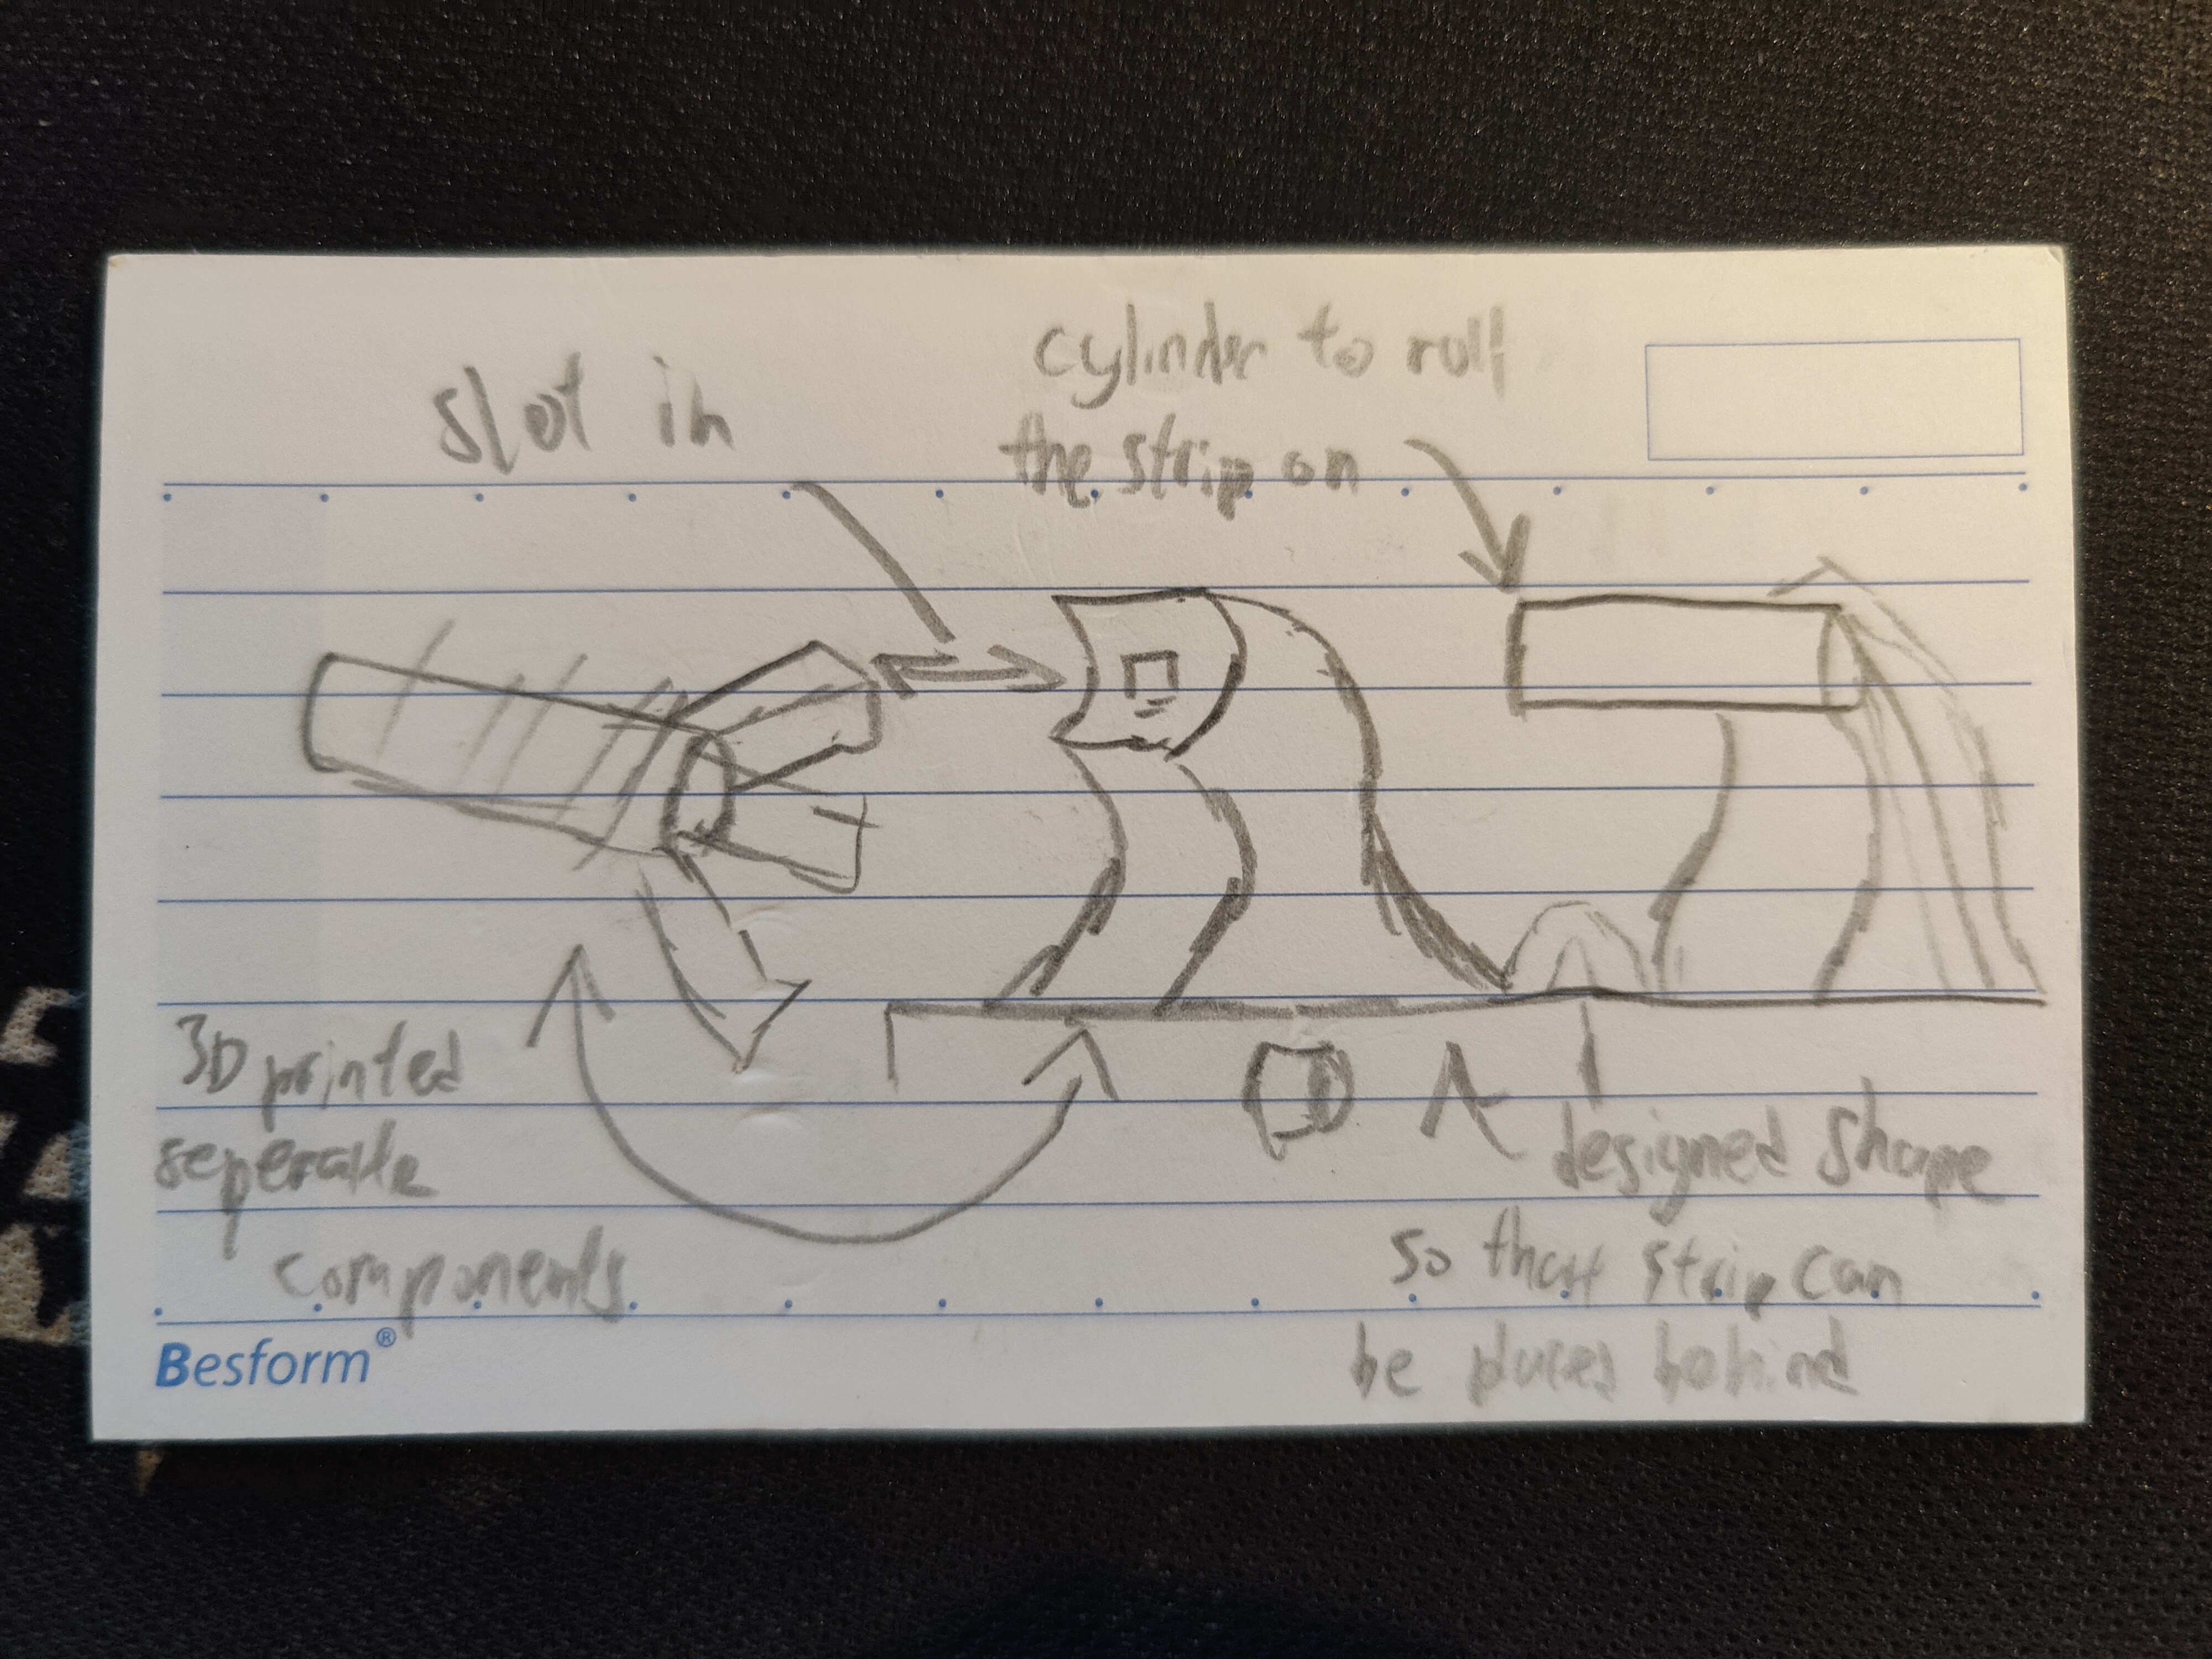 slot in
cylinder to roll
the strip on
3D printed
seperate
components
designed shape
so that strip can
be places behind
Besform®